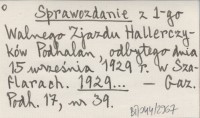 Sprawozdanie z 1-go
Walnego Zjazdu Hallerczy-
ków Podhalan, odbytego dnia
15 września 1929 r. w Sza-
flarach. 1929... — Gaz.
Podh. 17, nr 39.